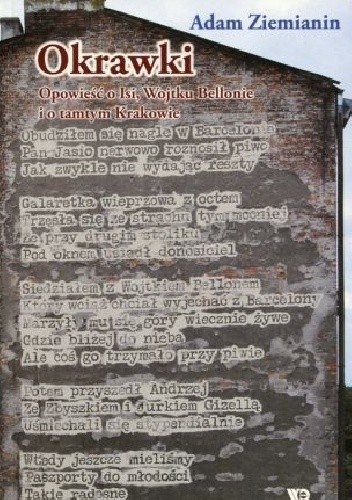 Adam Ziemianin
Okrawki
Opowieść o Isi, Wojtku Bellonie
i o tamtym Krakowie
Obudziłem się nagle w Barcelonie
Pan Jasio nerwowo roznosił piwo
Jak zwykle nie wydając reszty
Galaretka wieprzowa z octem
Trzęsła się ze strachu tym mocniej
Że przy drugim stoliku
Pod oknem usiadł donosiciel
Siedziałem z Wojtkiem Bellonem
Który wciąż chciał wyjechać z Barcelony
Marzyły mu się góry wiecznie żywe
Gdzie bliżej do nieba
Ale coś go trzymało przy piwie
Potem przyszedł Andrzej
Ze Zbyszkiem i Jurkiem Gizellą
Uśmiechali się stypendialnie
Wtedy jeszcze mieliśmy
Paszporty do młodości
Takie radosne